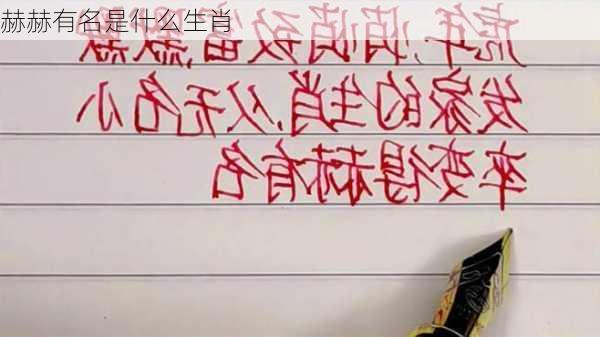 赫赫有名是什么生肖
虎年,悄悄致富,默默
发家的生肖,从无名小
卒变得赫有名